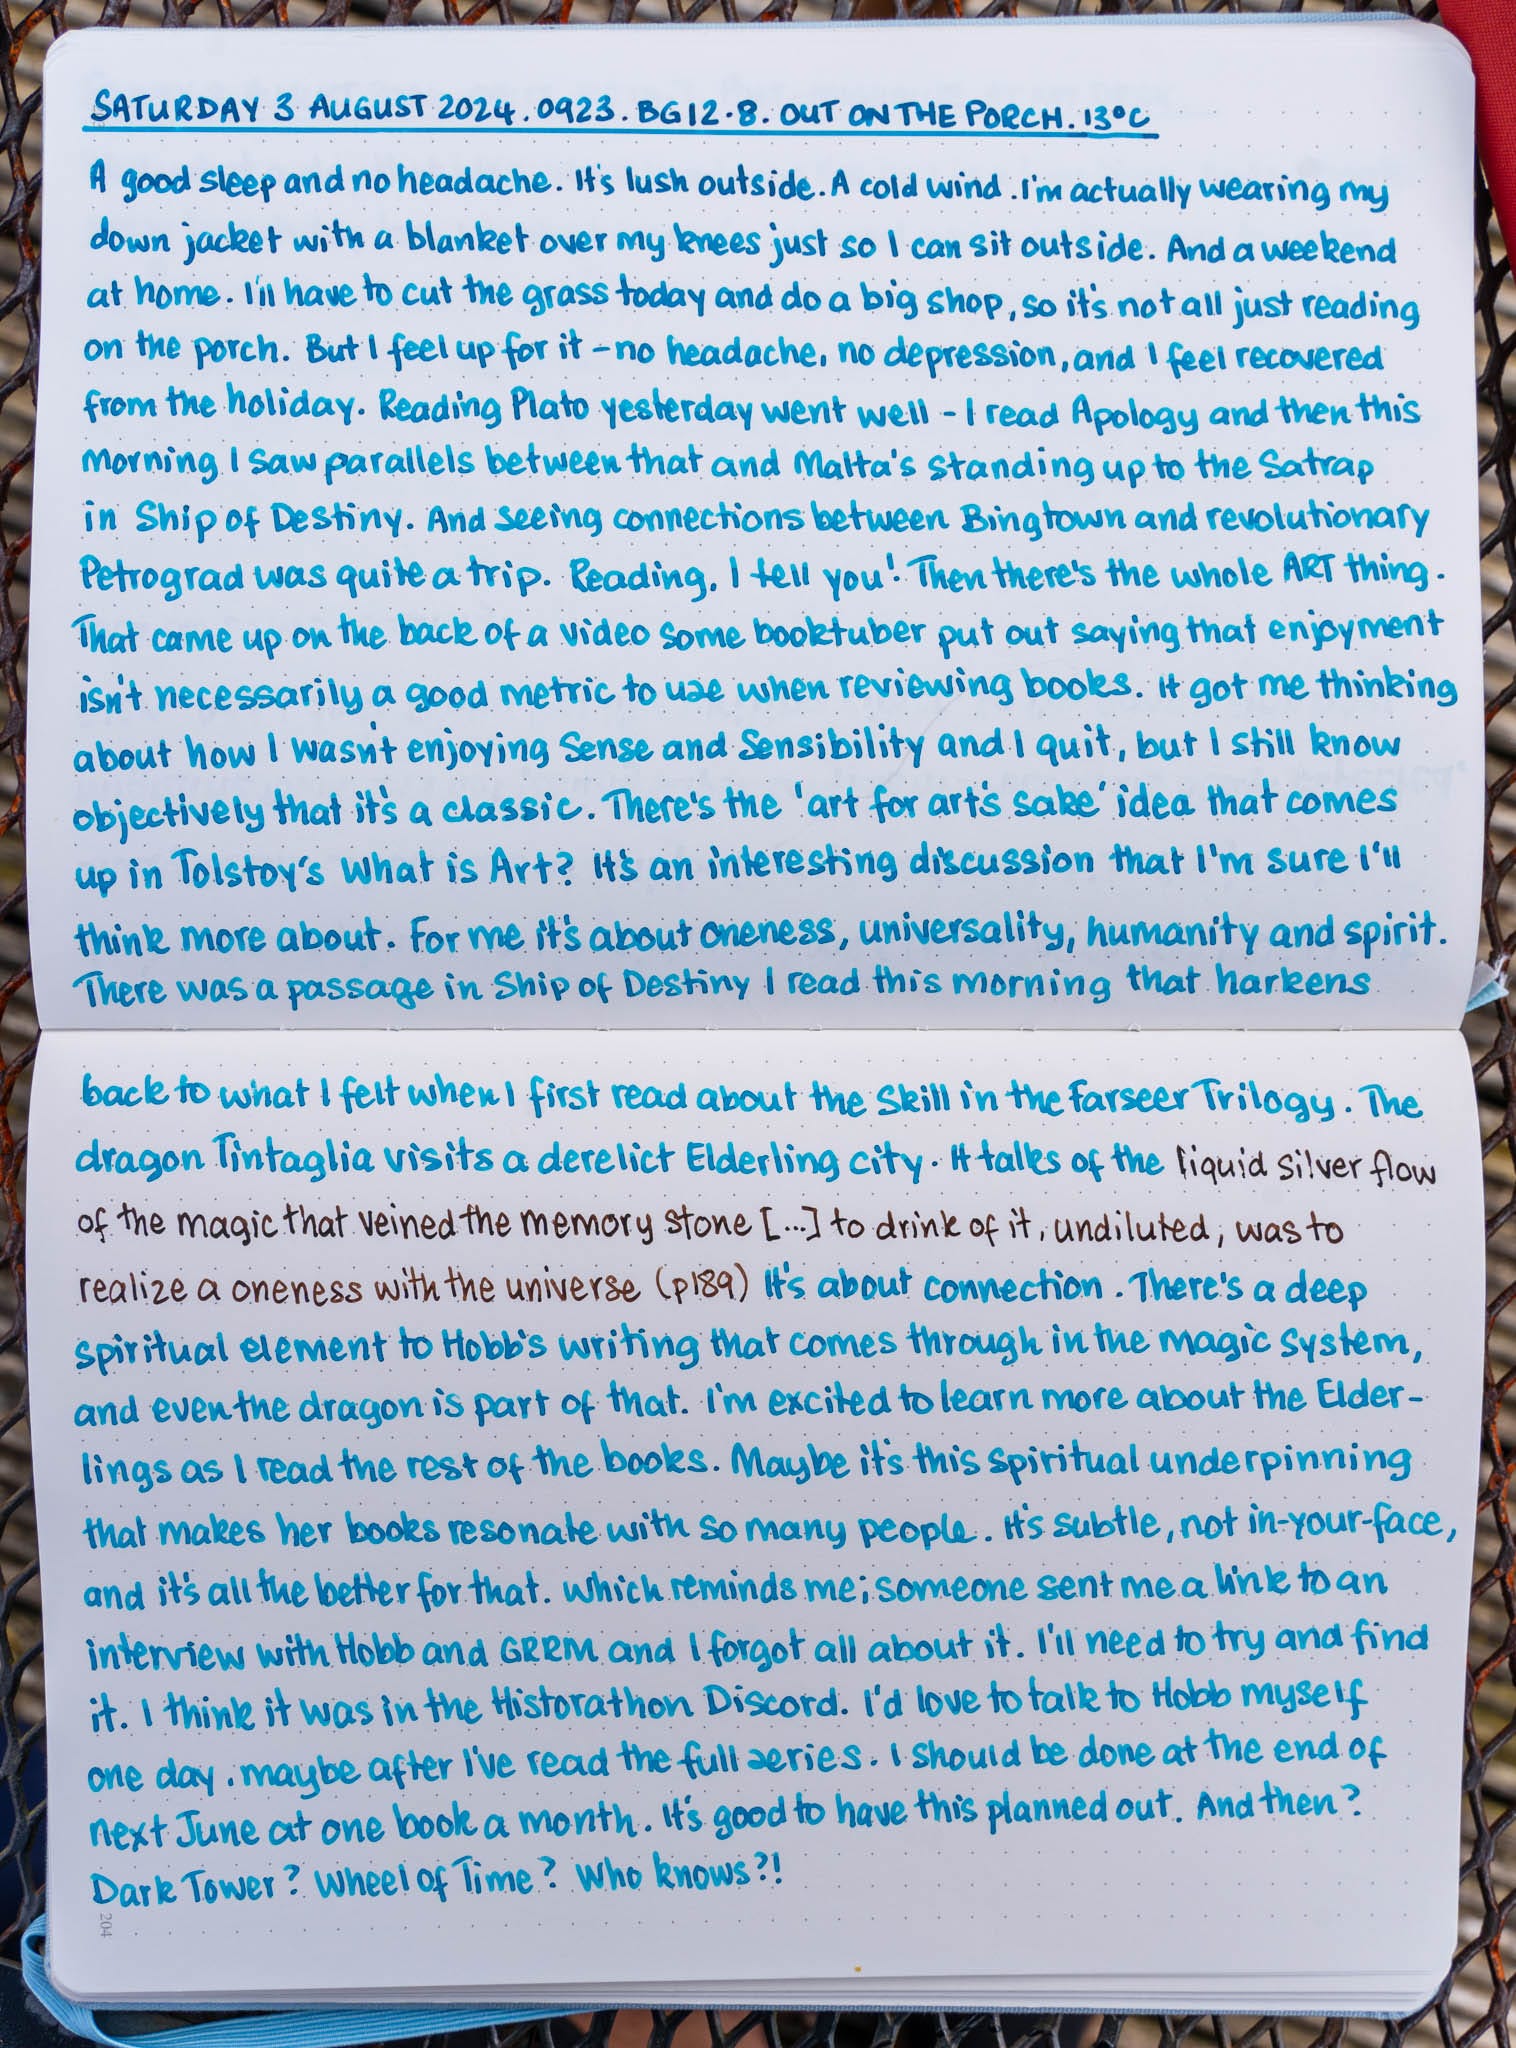 SATURDAY 3 AUGUST 2024. 0923. BG12.8. OUT ON THE PORCH. 13°C
A good sleep and no headache. It's lush outside. A cold wind. I'm actually wearing my
down jacket with a blanket over my knees just so I can sit outside. And a weekend
at home. I'll have to cut the grass today and do a big shop, so it's not all just reading
on the porch. But I feel up for it – no headache, no depression, and I feel recovered
from the holiday. Reading Plato yesterday went well – I read Apology and then this
morning I saw parallels between that and Malta's standing up to the Satrap
in Ship of Destiny. And seeing connections between Bingtown and revolutionary
Petrograd was quite a trip. Reading, I tell you! Then there's the whole ART thing.
That came up on the back of a video some booktuber put out saying that enjoyment
isn't necessarily a good metric to use when reviewing books. It got me thinking
about how I wasn't enjoying Sense and Sensibility and I quit, but I still know
objectively that it's a classic. There's the 'art for art's sake' idea that comes
up in Tolstoy's What is Art? It's an interesting discussion that I'm sure I'll
think more about. For me it's about oneness, universality, humanity and spirit.
There was a passage in Ship of Destiny I read this morning that harkens
back to what I felt when I first read about the Skill in the Farseer Trilogy. The
dragon Tintaglia visits a derelict Elderling city. It talks of the liquid silver flow
of the magic that veined the memory stone [...] to drink of it, undiluted, was to
realize a oneness with the universe (p189) It's about connection. There's a deep
spiritual element to Hobb's writing that comes through in the magic system,
and even the dragon is part of that. I'm excited to learn more about the Elder-
lings as I read the rest of the books. Maybe it's this spiritual underpinning
that makes her books resonate with so many people. It's subtle, not in-your-face,
and it's all the better for that. Which reminds me; someone sent me a link to an
interview with Hobb and GRRM and I forgot all about it. I'll need to try and find
it. I think it was in the Historathon Discord. I'd love to talk to Hobb myself
one day. maybe after I've read the full series. I should be done at the end of
next June at one book a month. It's good to have this planned out. And then?
Dark Tower? Wheel of Time? Who knows?!
204